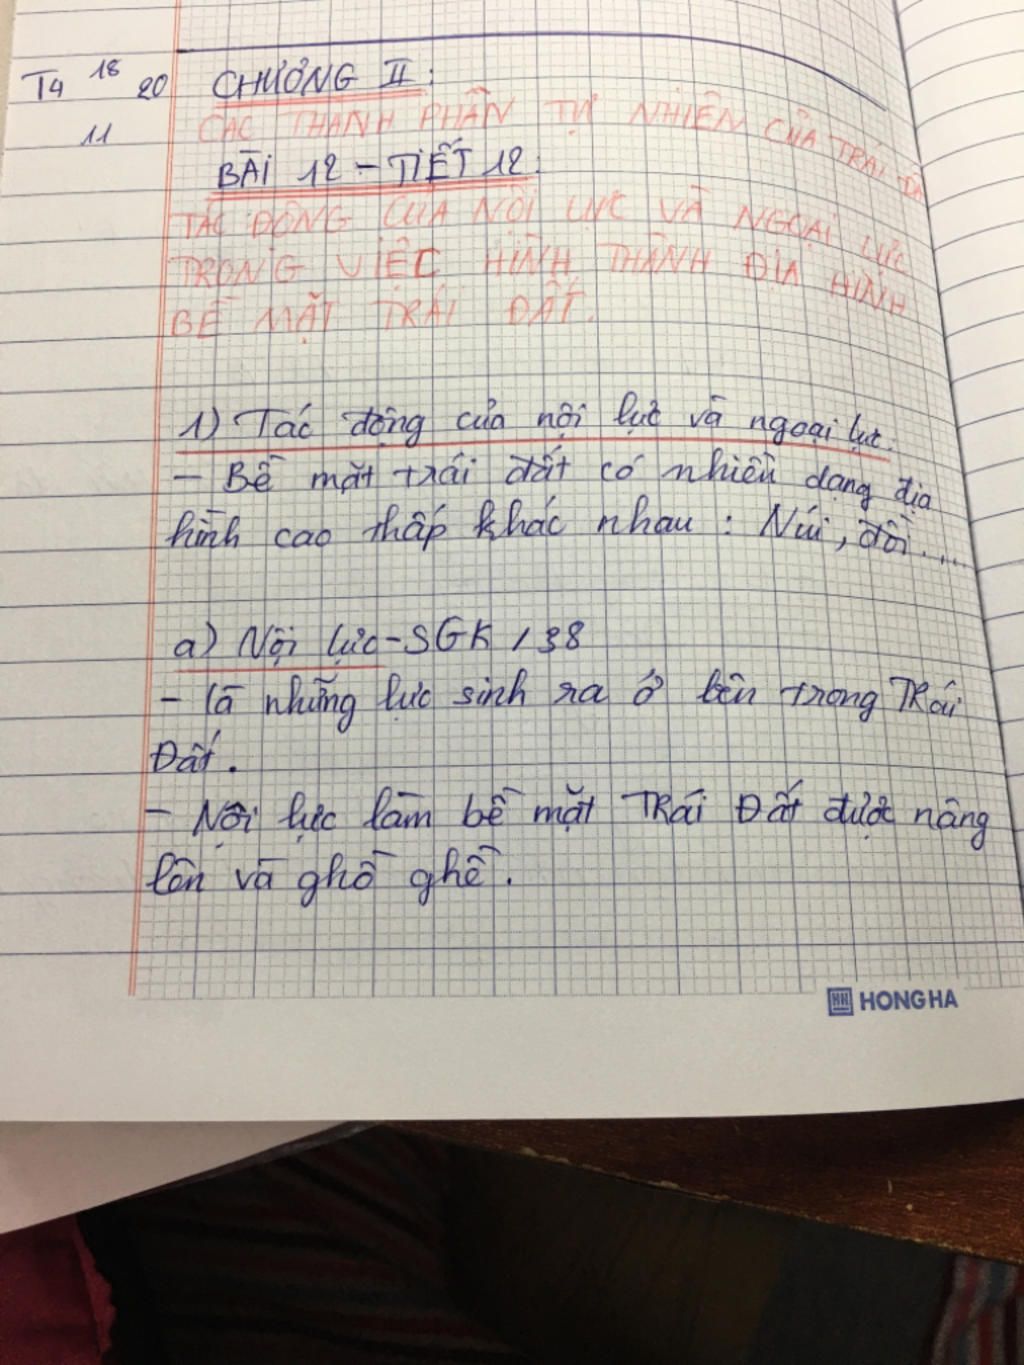 T4 18 20 CHƯƠNG II :
11 CÁC THÀNH PHẦN TỰ NHIÊN CỦA TRÁI ĐẤ
BÀI 12 - TIẾT 12:
TÁC ĐỘNG CỦA NỘI LỰC VÀ NGOẠI LỰC
TRONG VIỆC HÌNH THÀNH ĐỊA HÌNH
BỀ MẶT TRÁI ĐẤT.
1) Tác động của nội lực và ngoại lực.
- Bề mặt trái đất có nhiều dạng địa
hình cao thấp khác nhau : Núi, đồi....
a) Nội lực - SGK / 38
- là những lực sinh ra ở bên trong Trái
Đất.
- Nội lực làm bề mặt Trái Đất được nâng
lên và ghồ ghề.
HONG HA